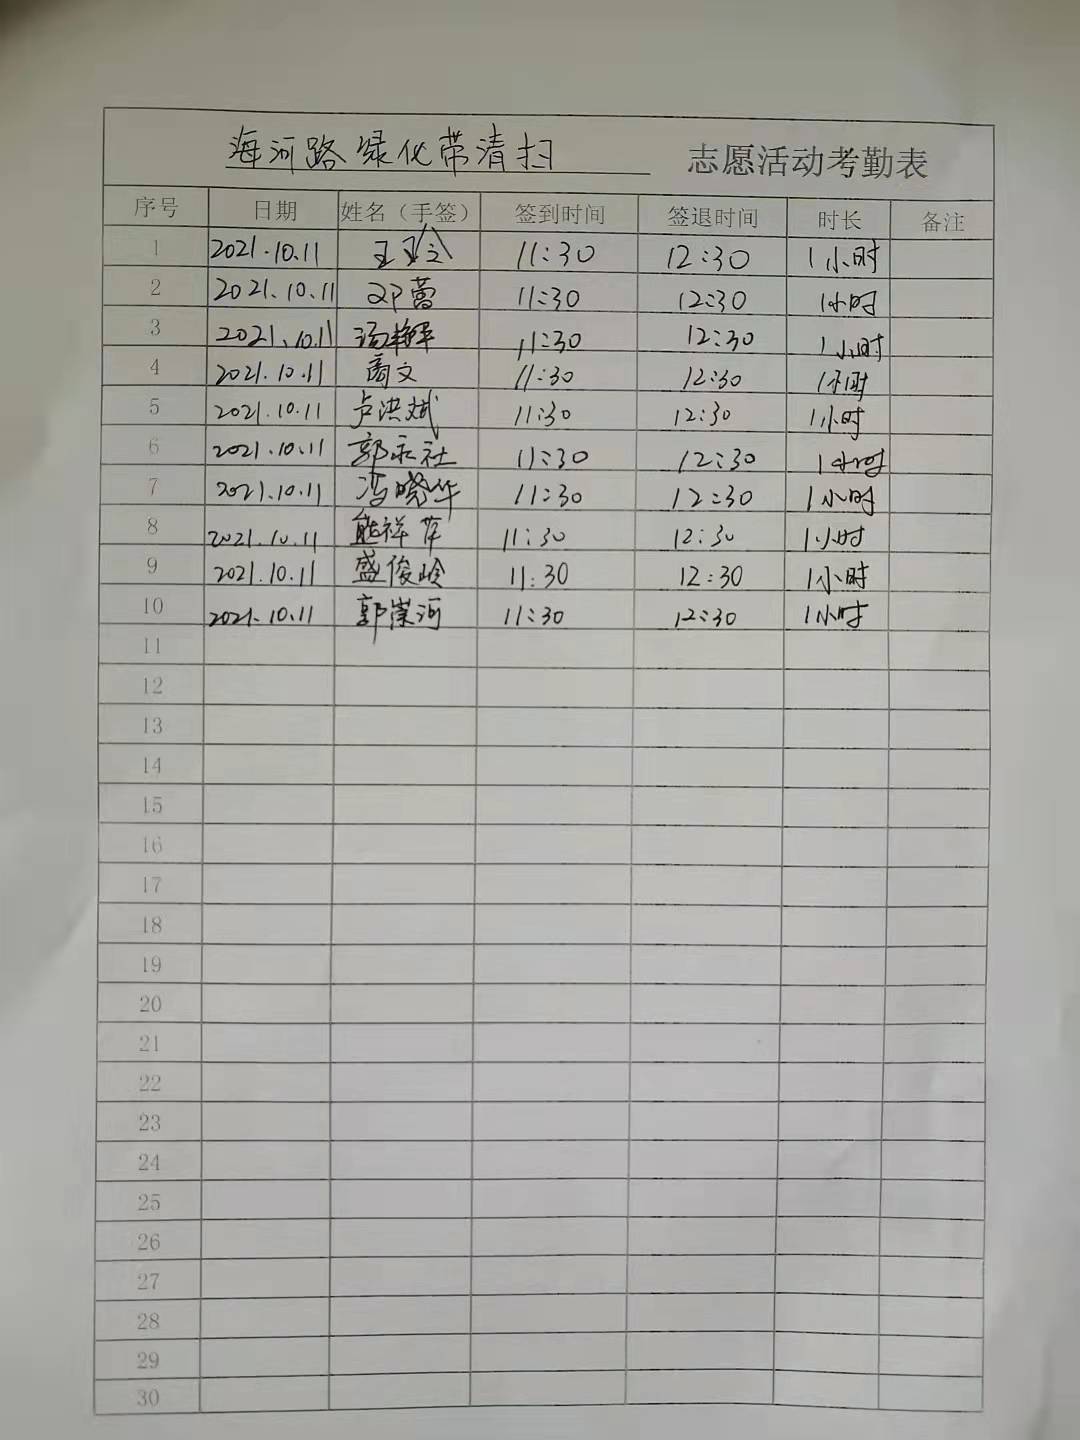 海河路绿化带清扫 志愿活动考勤表
序号 日期 姓名（手签） 签到时间 签退时间 时长 备注
1 2021.10.11 11:30 12:30 1小时
2 2021.10.11 邓蕾 11:30 12:30 1小时
3 2021.10.11 汤艳萍 11:30 12:30 1小时
4 2021.10.11 商文 11:30 12:30 1小时
5 2021.10.11 卢洪斌 11:30 12:30 1小时
6 2021.10.11 郭永社 11:30 12:30 1小时
7 2021.10.11 冯晓华 11:30 12:30 1小时
8 2021.10.11 熊祥萍 11:30 12:30 1小时
9 2021.10.11 盛俊岭 11:30 12:30 1小时
10 2021.10.11 郭崇河 11:30 12:30 1小时
11
12
13
14
15
16
17
18
19
20
21
22
23
24
25
26
27
28
29
30